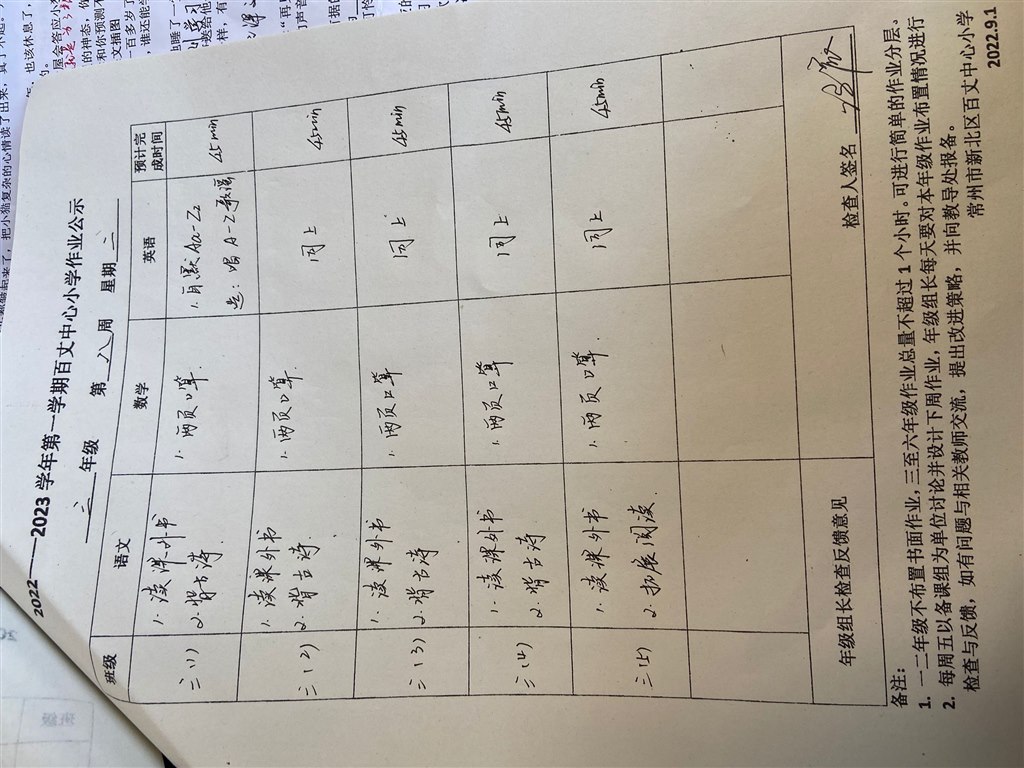 2022——2023 学年第一学期百丈中心小学作业公示
三 年级 第 八 周 星期 二
班级 语文 数学 英语 预计完成时间
三（1） 1. 读课外书 2. 背古诗 1. 两页口算. 1. 自默Aa-Zz 选：唱 A-Z歌谣 45min
三（2） 1. 读课外书 2. 背古诗 1. 两页口算. 同上 45min
三（3） 1. 读课外书 2. 背古诗 1. 两页口算. 同上 45min
三（4） 1. 读课外书 2. 背古诗. 1. 两页口算 同上 45min
三（5） 1. 读课外书 2. 拓展阅读. 1. 两页口算. 同上 45min
年级组长检查反馈意见 检查人签名
备注：
1. 一二年级不布置书面作业，三至六年级作业总量不超过 1 个小时。可进行简单的作业分层。
2. 每周五以备课组为单位讨论并设计下周作业，年级组长每天要对本年级作业布置情况进行
检查与反馈，如有问题与相关教师交流，提出改进策略，并向教导处报备。
常州市新北区百丈中心小学
2022.9.1